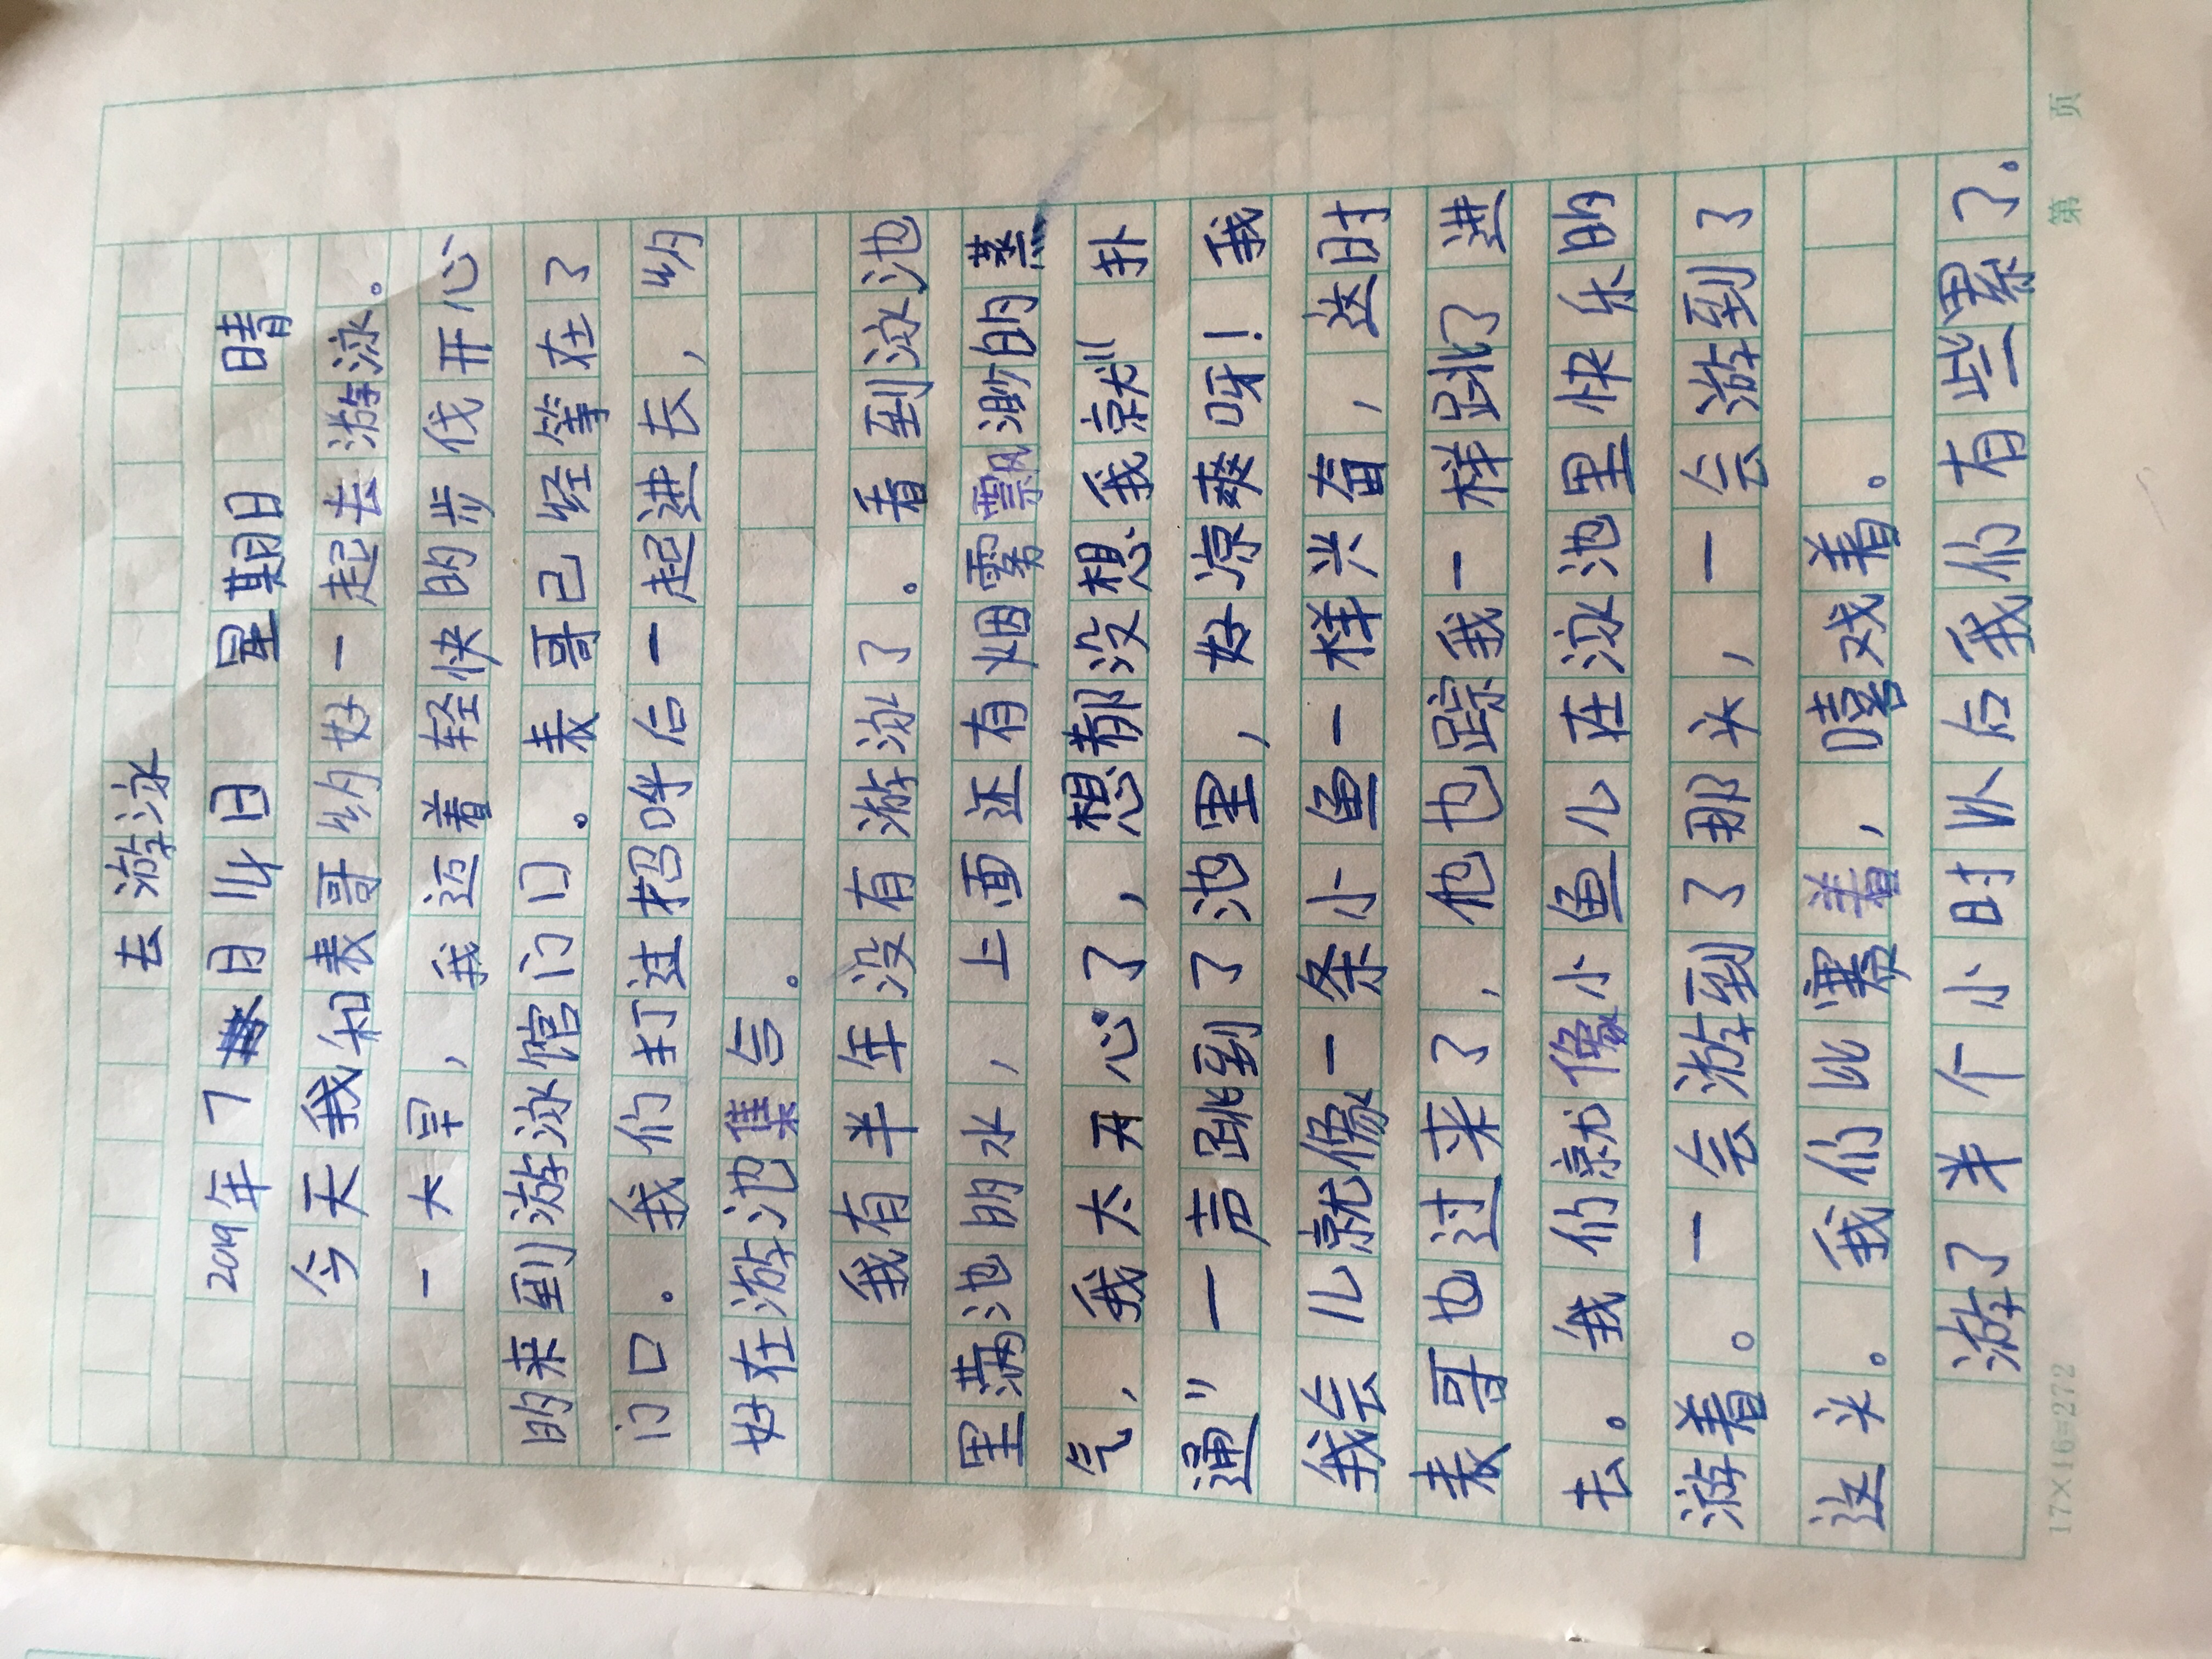 去游泳
2019年7月14日 星期日 晴
今天我和表哥约好一起去游泳。
一大早，我迈着轻快的步伐开心
的来到游泳馆门口。表哥已经等在了
门口。我们打过招呼后一起进去，约
好在游池集合。
我有半年没有游泳了。看到泳池
里满池的水，上面还有烟雾飘渺的蒸
气，我太开心了，想都没想我就“扑
通”一声跳到了池里，好凉爽呀！我
我会儿就像一条小鱼一样兴奋，这时
表哥也过来了，他也踪我一样跳了进
去。我们就像小鱼儿在泳池里快乐的
游着。一会游到了那头，一会游到了
这头。我们比赛着，嘻戏着。
游了半个小时以后我们有些累了。
17×16=272
第 页